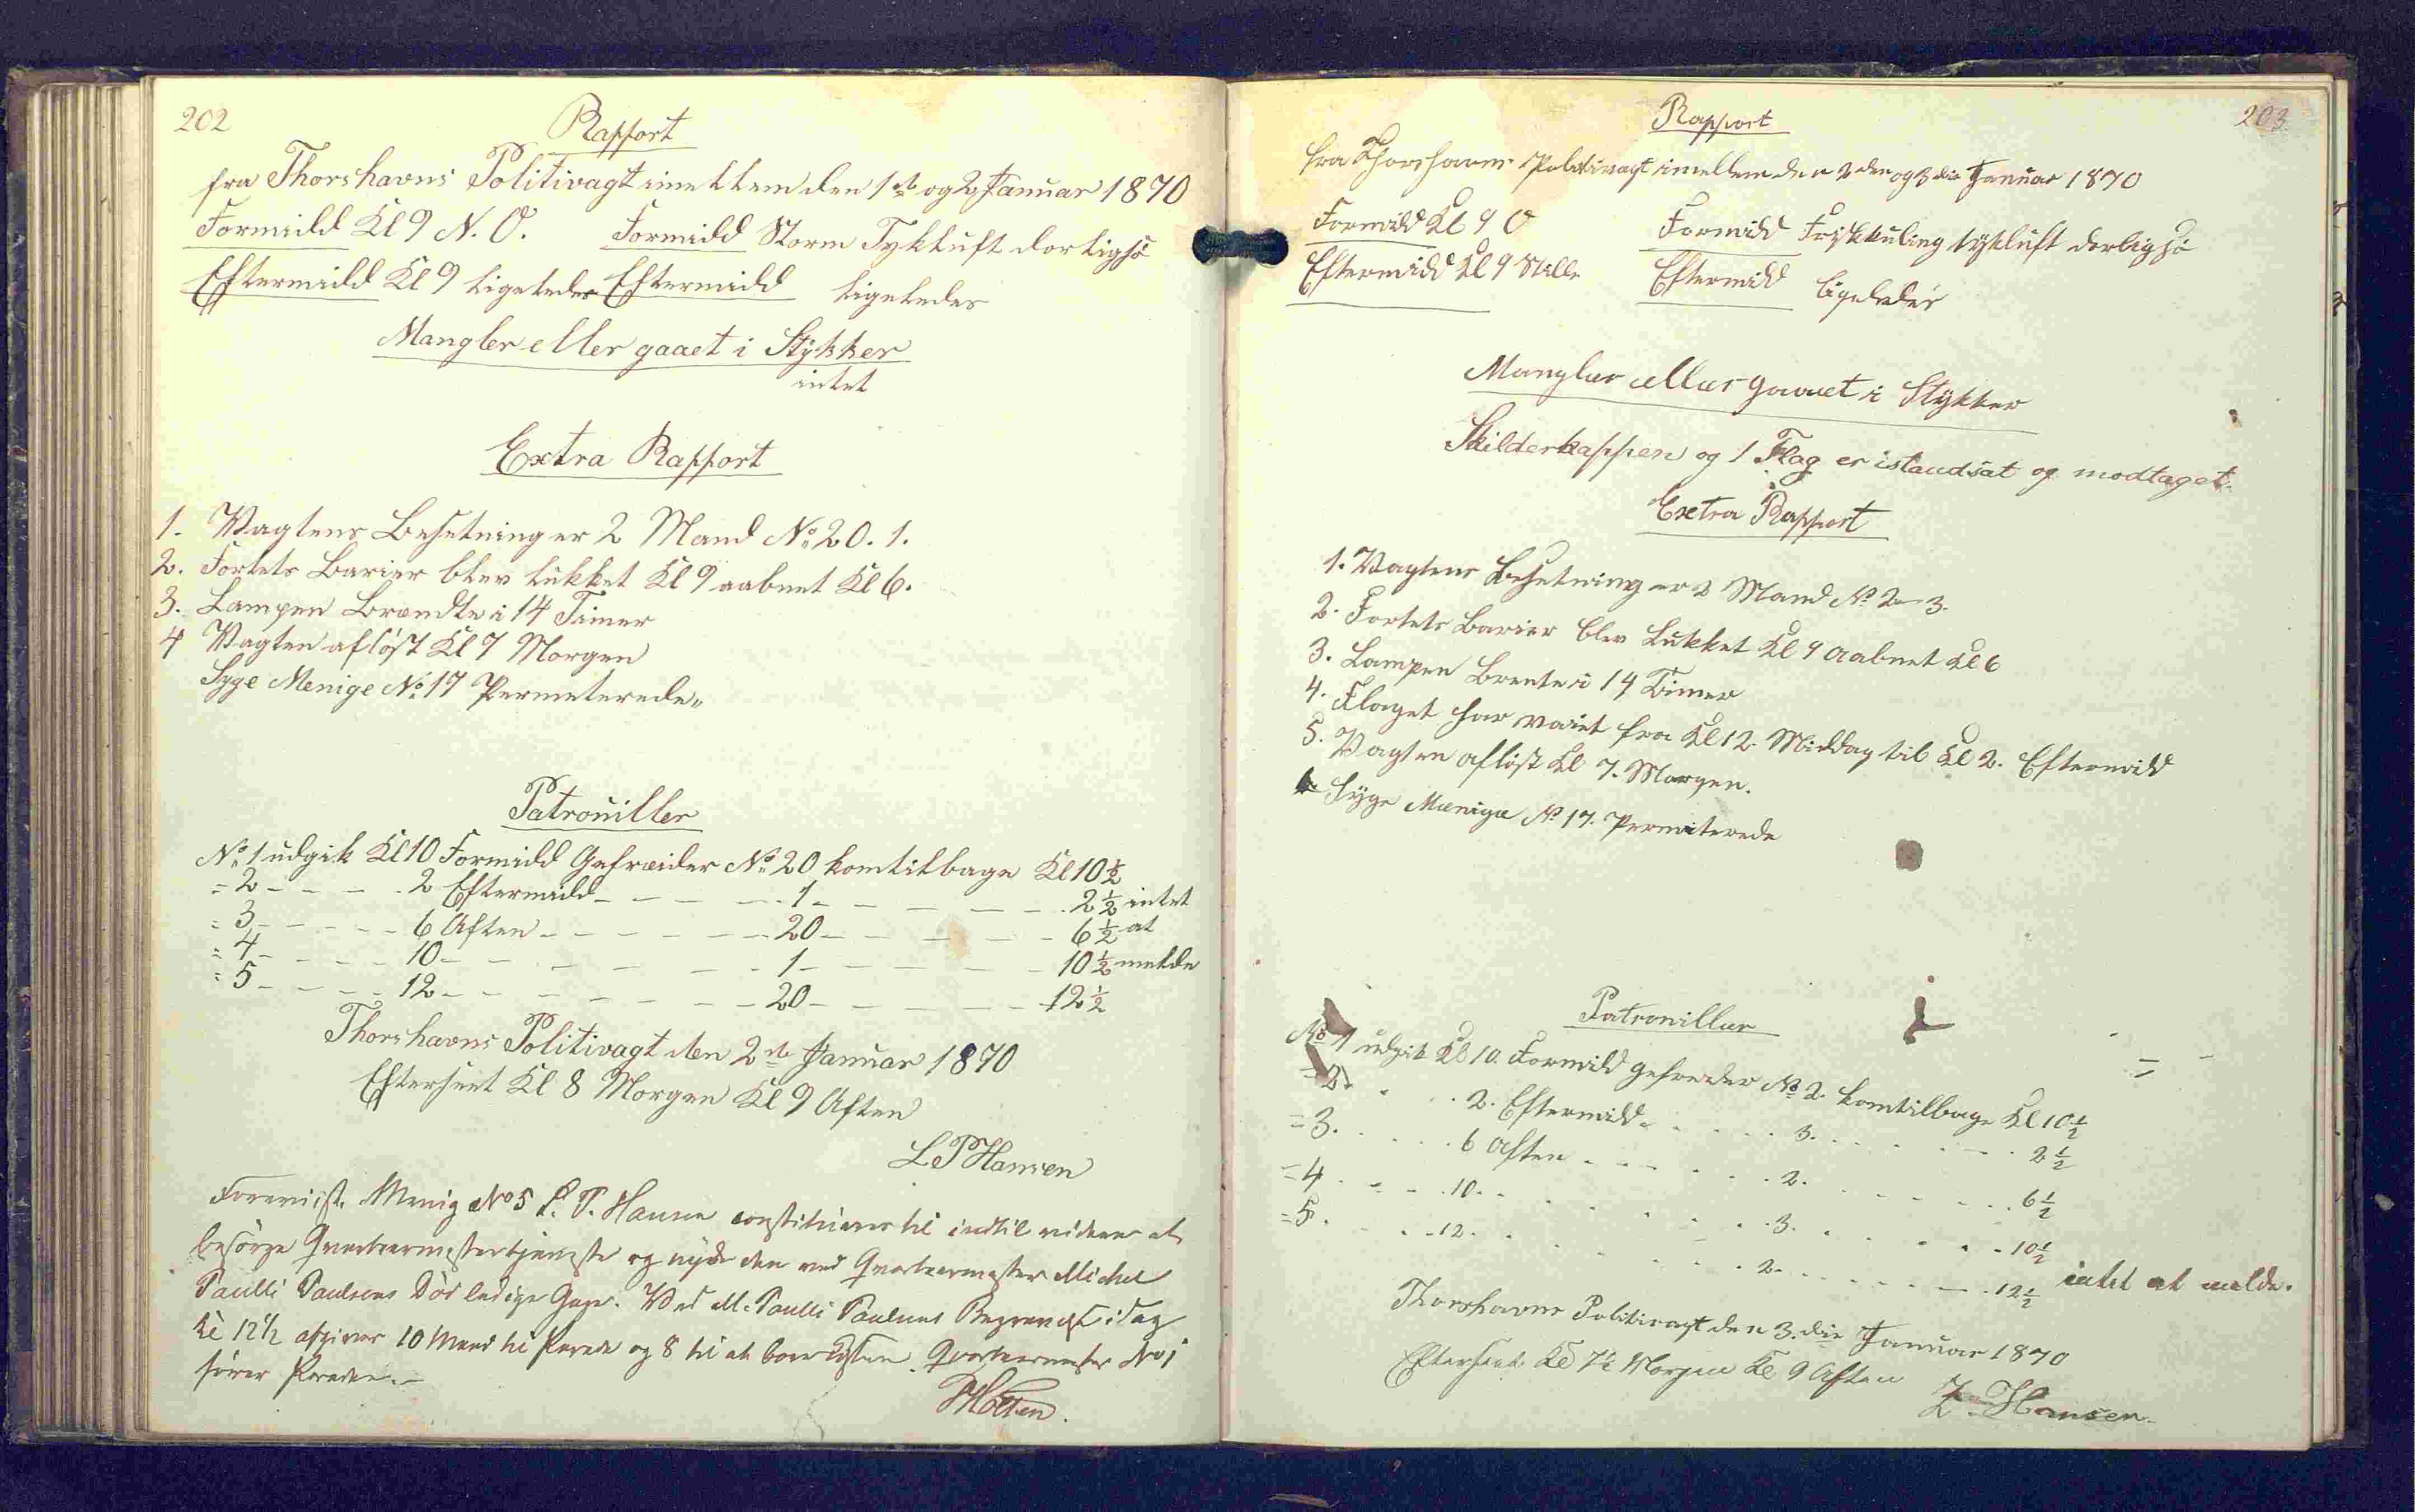 202
Rapport
fra Thorshavns Politivagt imellem den 1ste og 2 Januar 1870
Formidd Kl 9 N. O. Formidd Storm Tykluft dorligsö
Eftermidd Kl 9 ligeledes Eftermidd ligeledes
Mangler eller gaaet i Stÿkker
intet
Extra Rapport
1. Vagtens Besetning er 2 Mand No 20. 1.
2. Fortets Barier blev lukket Kl 9 aabnet Kl 6.
3. Lampen Brændte i 14 Timer
4 Vagten aflöst Kl 7 Morgen
Syge Menige No 17 Permeterede.
Patrouiller
No 1 udgik Kl 10 Formidd Gefreider No 20 kom tilbage Kl 10 ½
= 2 - - - - 2 Eftermidd - - - - 1 - - - - - 2 ½ intet
= 3 - - - - 6 Aften - - - - - 20 - - - - - 6 ½ at
= 4 - - - - 10 - - - - - - 1 - - - - - 10 ½ melde
= 5 - - - - 12 - - - - - - 20 - - - - - 12 ½
Thorshavns Politivagt den 2de Januar 1870
Efterseet Kl 8 Morgen Kl 9 Aften
L P Hansen
Menig No 5 P. Hansen constitueres til indtil videre at
besörge Qvarteermestertjeneste og nyde den ved Qvarteermester Michel
Paulli Paulsens Död ledige Gage. Ved M. Paulli Paulsens Begravelse idag
Kl 12½ afgiver 10 Mand til Parade og 8 til at bære Kisten. Qvarteermester No 1
förer Paraden. -
HCMüller
203
Rapport
fra Thorshavns Politivagt imellem den 2den og 3die Januar 1870
Formidd Kl 9 O Formidd Friskkuling tÿkluft dorlig sö
Eftermidd Kl 9 Stille Eftermidd ligeledes
Mangler eller gaaet i Stÿkker
Skilderkappen og 1 Flag er istandsat og modtaget.
Extra Rapport
1. Vagtens Besetning er 2 Mand No 2 - 3.
2. Fortets Barier blev Lukket Kl 9 aabnet Kl 6
3. Lampen Brente i 14 Timer
4. Flaget har vaiet fra Kl 12. Middag til Kl 2. Eftermidd
5. Vagten aflöst Kl 7. Morgen.
Sÿge Menige No 17. Permiterede
Patrouiller
No 1 udgik Kl 10. Formidd gefreider No 2. kom tilbage Kl 10 ½
= 2. . . . 2. Eftermidd - . . . . 3. . . . . . 2 ½
= 3. . . . . 6 Aften - - - . . . 2. . . . . . 6 ½
= 4 . - - . 10. . . . . . . . 3. . . . . . 10 ½
= 5. . . . 12. . . . . . . . 2. - - - - - 12 ½ intet at melde.
Thorshavns Politivagt den 3.die Januar 1870
Efterseet Kl 7½ Morgen Kl 9 Aften
Z. Hansen.